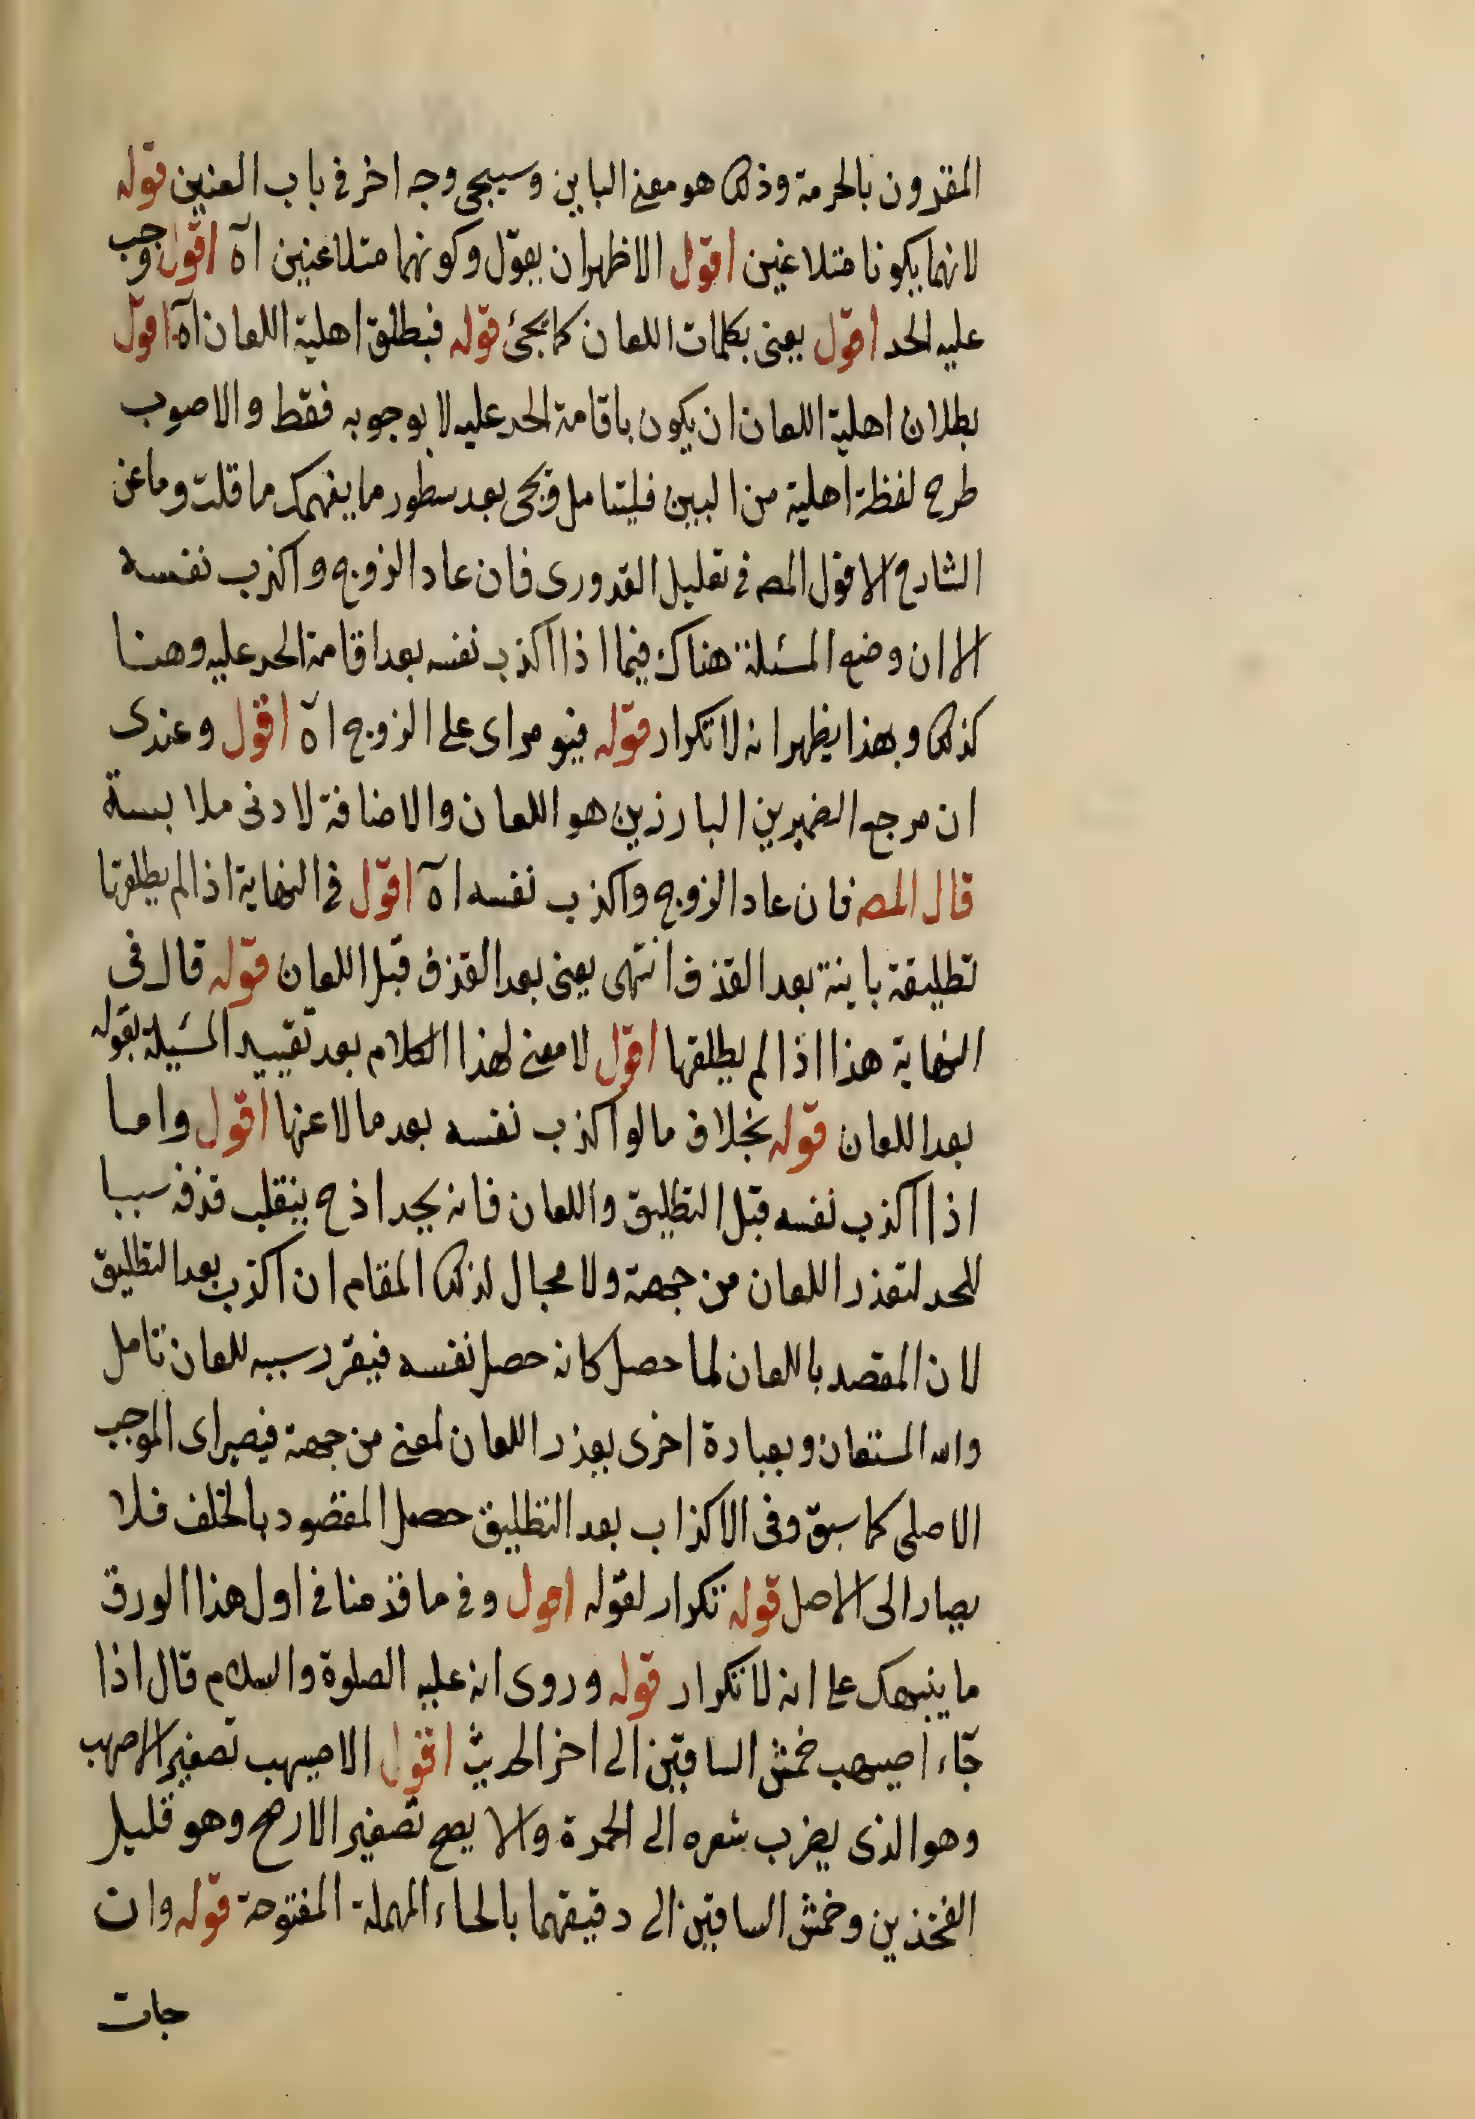 المقرون بالحرمة وذلك هو معنى الباين وسيجى وجه اخر فى باب العنين قوله
لانهما يكونا متلاعنين اقول الاظهر ان يقول وكونهما متلاعنين اه اقول وجب
عليه الحد اقول يعنى بكلمات اللعان كما يجئ قوله فبطلق اهلية اللعان اه اقول
بطلان اهلية اللعان ان يكون باقامة الحد عليه لا بوجوبه فقط والاصوب
طرح لفظة اهلية من البين فليتامل ويجى بعد سطور ما يفهمك ما قلت وما عن
الشارح الا قول المصـ فى تعليل القدورى فان عاد الزوج واكذب نفسه
الا ان وضع المسئلة هناك فيما اذا اكذب نفسه بعد اقامة الحد عليه وهنا
كذلك وبهذا يظهر انه لا تكرار قوله فينو مراى على الزوج اه اقول وعندى
ان مرجع الضميرين البارزين هو اللعان والاضافة لادنى ملابسة
قال المصـ فان عاد الزوج واكذب نفسه اه اقول فى النهاية اذا لم يطلقها
تطليقة باينة بعد القذف انتهى يعنى بعد القذف قبل اللعان قوله قال فى
النهاية هذا اذا لم يطلقها اقول لا معنى لهذا الكلام بعد تقييد المسئلة بقوله
بعد اللعان قوله بخلاف ما لو اكذب نفسه بعد ما لاعنها اقول واما
اذا اكذب نفسه قبل التطليق واللعان فانه يحد اذ ح ينقلب قذفه سببا
للحد لتعذر اللعان من جهته ولا مجال لذلك المقام ان اكذب بعد التطليق
لان المقصد باللعان لما حصل كانه حصل نفسه فيقرر سببه للعان تامل
والله المستعان وبعبارة اخرى بعذر اللعان لمعنى من جهته فيصير اى الموجب
الاصلى كما سبق وفى الاكذاب بعد التطليق حصل المقصود بالخلف فلا
يصار الى الاصل قوله تكرار لقوله اقول وفى ما قدمنا فى اول هذا الورق
ما ينبهك على انه لا تكرار قوله وروى انه عليه الصلوة والسلام قال اذا
جاء اصيهب خمش الساقين الى اخر الحديث اقول الاصيهب تصغير الاصهب
وهو الذى يضرب شعره الى الحمرة والا يصح تصغير الارصح وهو قليل
الفخذين وخمش الساقين الى دقيقهما بالحاء المهملة المفتوحة قوله وان
جات